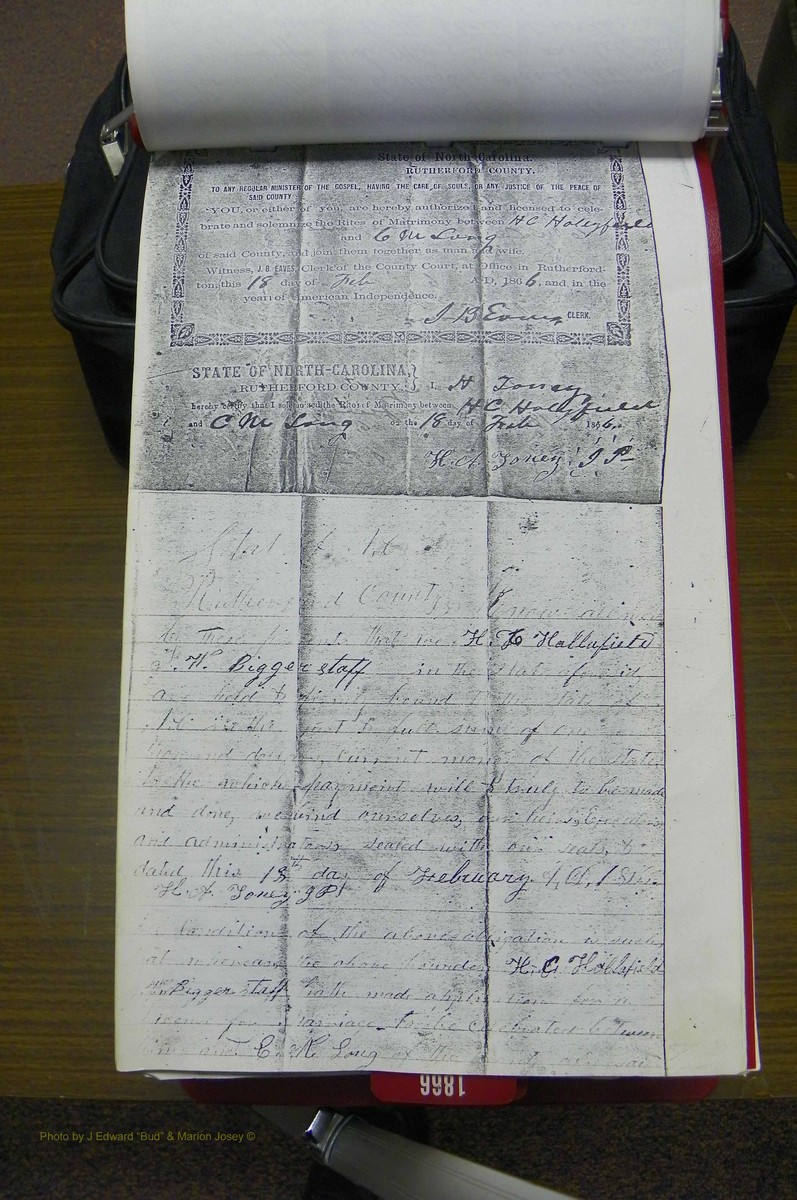 State of North-Carolina.
RUTHERFORD COUNTY.
TO ANY REGULAR MINISTER OF THE GOSPEL, HAVING THE CARE OF SOULS, OR ANY JUSTICE OF THE PEACE OF
SAID COUNTY
YOU, or either of you, are hereby authorized and licensed to cele-
brate and solemnize the Rites of Matrimony between H C Hollyfield
and C M Long
of said County, and join them together as man and wife.
Witness, J. B. EAVES, Clerk of the County Court, at Office in Rutherford-
ton, this 18 day of Feb A.D, 1866, and in the
year of American Independence.
J B Eaves CLERK.
STATE OF NORTH-CAROLINA,
RUTHERFORD COUNTY. } I, H Toney
hereby certify that I solemnized the Rites of Matrimony between H C Hollyfield
and C M Long on the 18 day of Feb 1866.
H. A. Toney J P
State of N C
Rutherford County Know all men
by these presents that we H. C Hollifield
W. Biggerstaff in the State aforesaid,
are held & firmly bound to the State of
just & full sum of one
thousand dollars, current money of the State
to the which payment will & truly to be made
and done, we bind ourselves, our heirs, Executors
and administrators, sealed with our seals, &
dated this 18th day of February A, D, 186
H. A. Toney JP
Condition of the above obligation is such,
that whereas the above bounden H. C Hollifield
Biggerstaff hath made application for a
license for marriage to be celebrated between
him and C. M. Long of the county aforesaid
1866
Photo by J Edward "Bud" & Marion Josey ©